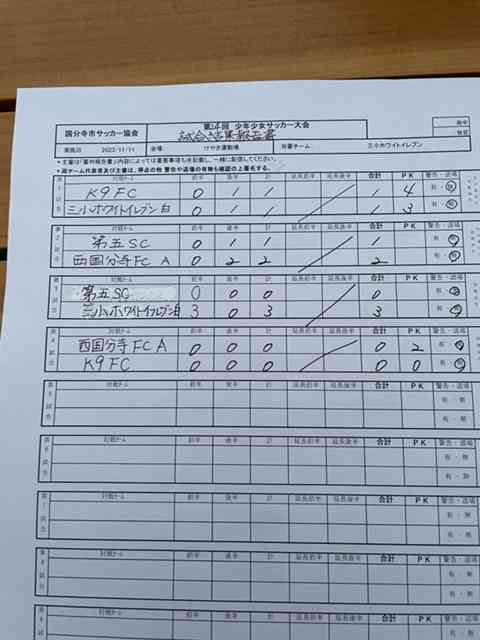 第14回 少年少女サッカー大会
国分寺市サッカー協会 試合結果報告書
実施日 2023/11/11 会場 けやき運動場 当番チーム 三小ホワイトイレブン
*主審は「審判報告書」内容によっては重要事項も全記載し、一緒に配信してください。
対戦チーム 前半 後半 計 延長前半 延長後半 合計 PK 警告・退場
第1試合 K9FC 0 1 1 1 4 有・無
三小ホワイトイレブン白 0 1 1 1 3 有・無
対戦チーム 前半 後半 計 延長前半 延長後半 合計 PK 警告・退場
第2試合 第五SC 0 1 1 1 有・無
西国分寺FC A 0 2 2 2 有・無
対戦チーム 前半 後半 計 延長前半 延長後半 合計 PK 警告・退場
第3試合 第五SC 0 0 0 0 有・無
三小ホワイトイレブン白 3 0 3 3 有・無
対戦チーム 前半 後半 計 延長前半 延長後半 合計 PK 警告・退場
第4試合 西国分寺FC A 0 0 0 0 2 有・無
K9 FC 0 0 0 0 0 有・無
対戦チーム 前半 後半 計 延長前半 延長後半 合計 PK 警告・退場
第5試合 有・無
有・無
対戦チーム 前半 後半 計 延長前半 延長後半 合計 PK 警告・退場
第6試合 有・無
有・無
対戦チーム 前半 後半 計 延長前半 延長後半 合計 PK 警告・退場
第7試合 有・無
有・無
対戦チーム 前半 後半 計 延長前半 延長後半 合計 PK 警告・退場
第8試合 有・無
有・無
対戦チーム 前半 後半 計 延長前半 延長後半 合計 PK 警告・退場